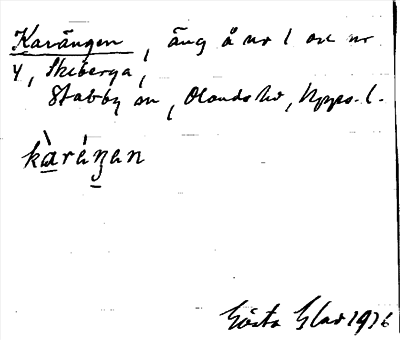 Karängen, äng å nr 1 och nr
4, Skeberga,
Stabby sn, Olands hd, Upps. l.
kàráŋen
Gösta Glad 1916